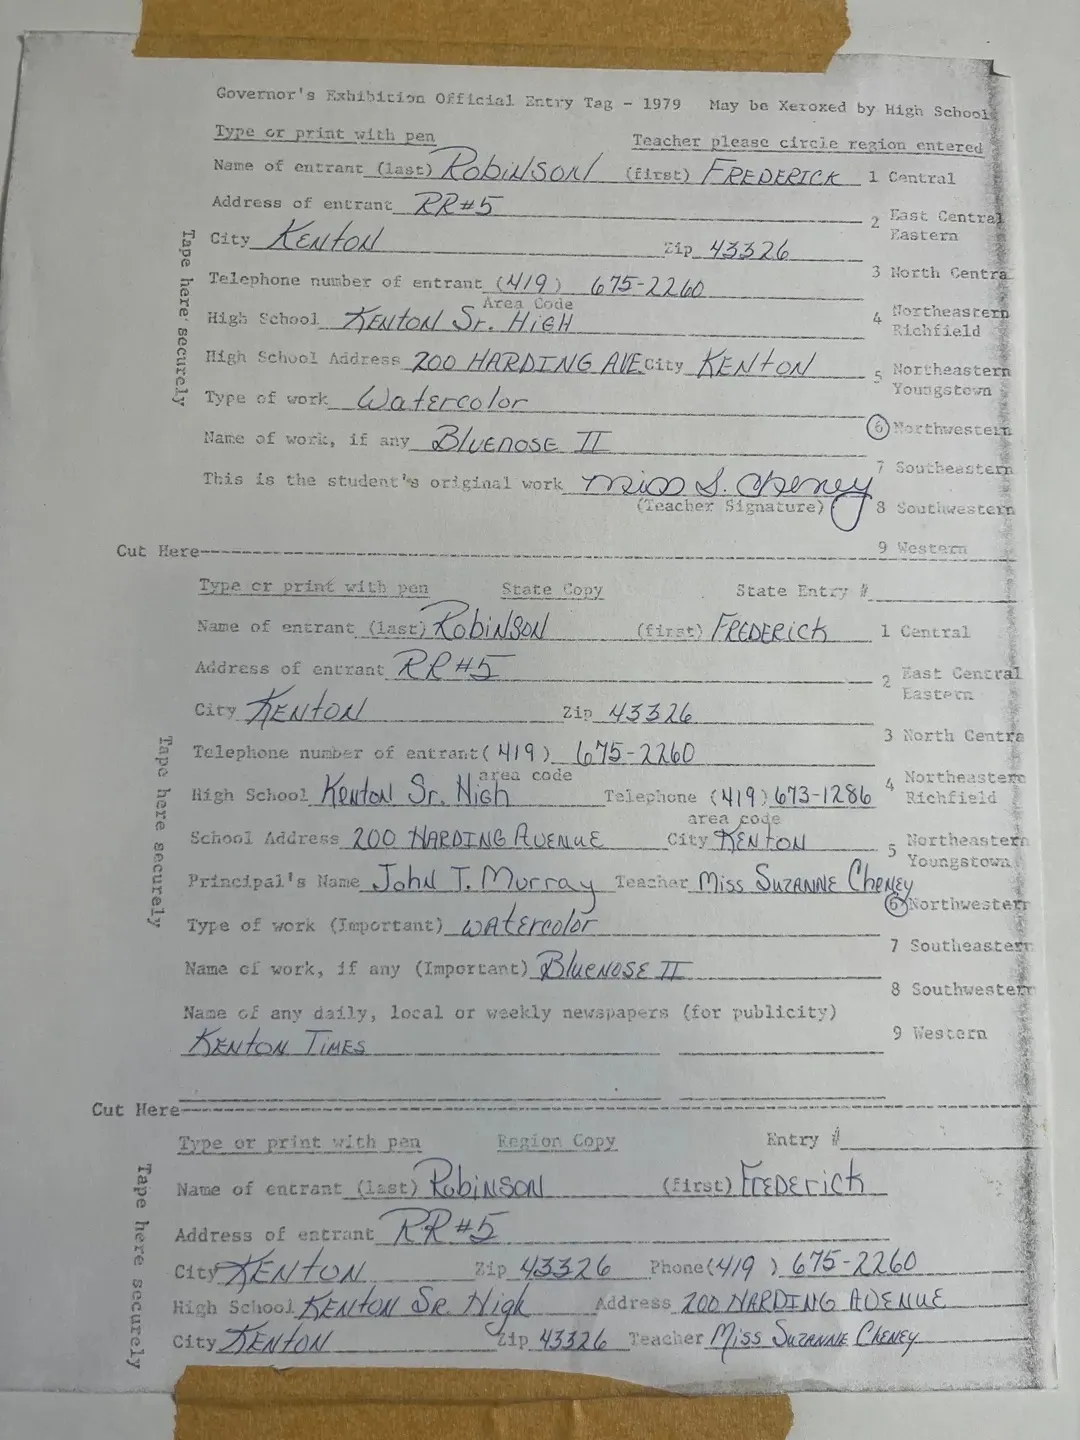 Governor's Exhibition Official Entry Tag - 1979 May be Xeroxed by High School
Type or print with pen Teacher please circle region entered
Name of entrant (last) Robinson (first) FREDERICK 1 Central
Address of entrant RR#5 2 East Central
Eastern
City KENTON Zip 43326
3 North Centra
Telephone number of entrant (419) 675-2260
Area Code
High School KENTON Sr. HIGH 4 Northeastern
Richfield
High School Address 200 HARDING AVE City KENTON 5 Northeastern
Youngstown
Type of work Watercolor
Name of work, if any Bluenose II 6 Northwestern
7 Southeastern
This is the student's original work Miss S. Cheney
(Teacher Signature) 8 Southwestern
Tape here securely
Cut Here 9 Western
Type or print with pen State Copy State Entry #
Name of entrant (last) Robinson (first) FREDERICK 1 Central
Address of entrant RR#5 2 East Central
Eastern
City KENTON Zip 43326
3 North Centra
Telephone number of entrant (419) 675-2260
area code
High School Kenton Sr. High Telephone (419) 673-1286 4 Northeastern
Richfield
area code
School Address 200 HARDING AVENUE City KENTON 5 Northeastern
Youngstown
Principal's Name John T. Murray Teacher Miss SUZANNE CHENEY
6 Northwestern
Type of work (Important) watercolor
7 Southeastern
Name of work, if any (Important) Bluenose II
8 Southwestern
Name of any daily, local or weekly newspapers (for publicity)
KENTON TIMES 9 Western
Tape here securely
Cut Here
Type or print with pen Region Copy Entry #
Name of entrant (last) Robinson (first) FREDERICK
Address of entrant RR#5
City KENTON Zip 43326 Phone (419) 675-2260
High School KENTON SR. High Address 200 HARDING AVENUE
City KENTON Zip 43326 Teacher Miss SUZANNE CHENEY
Tape here securely